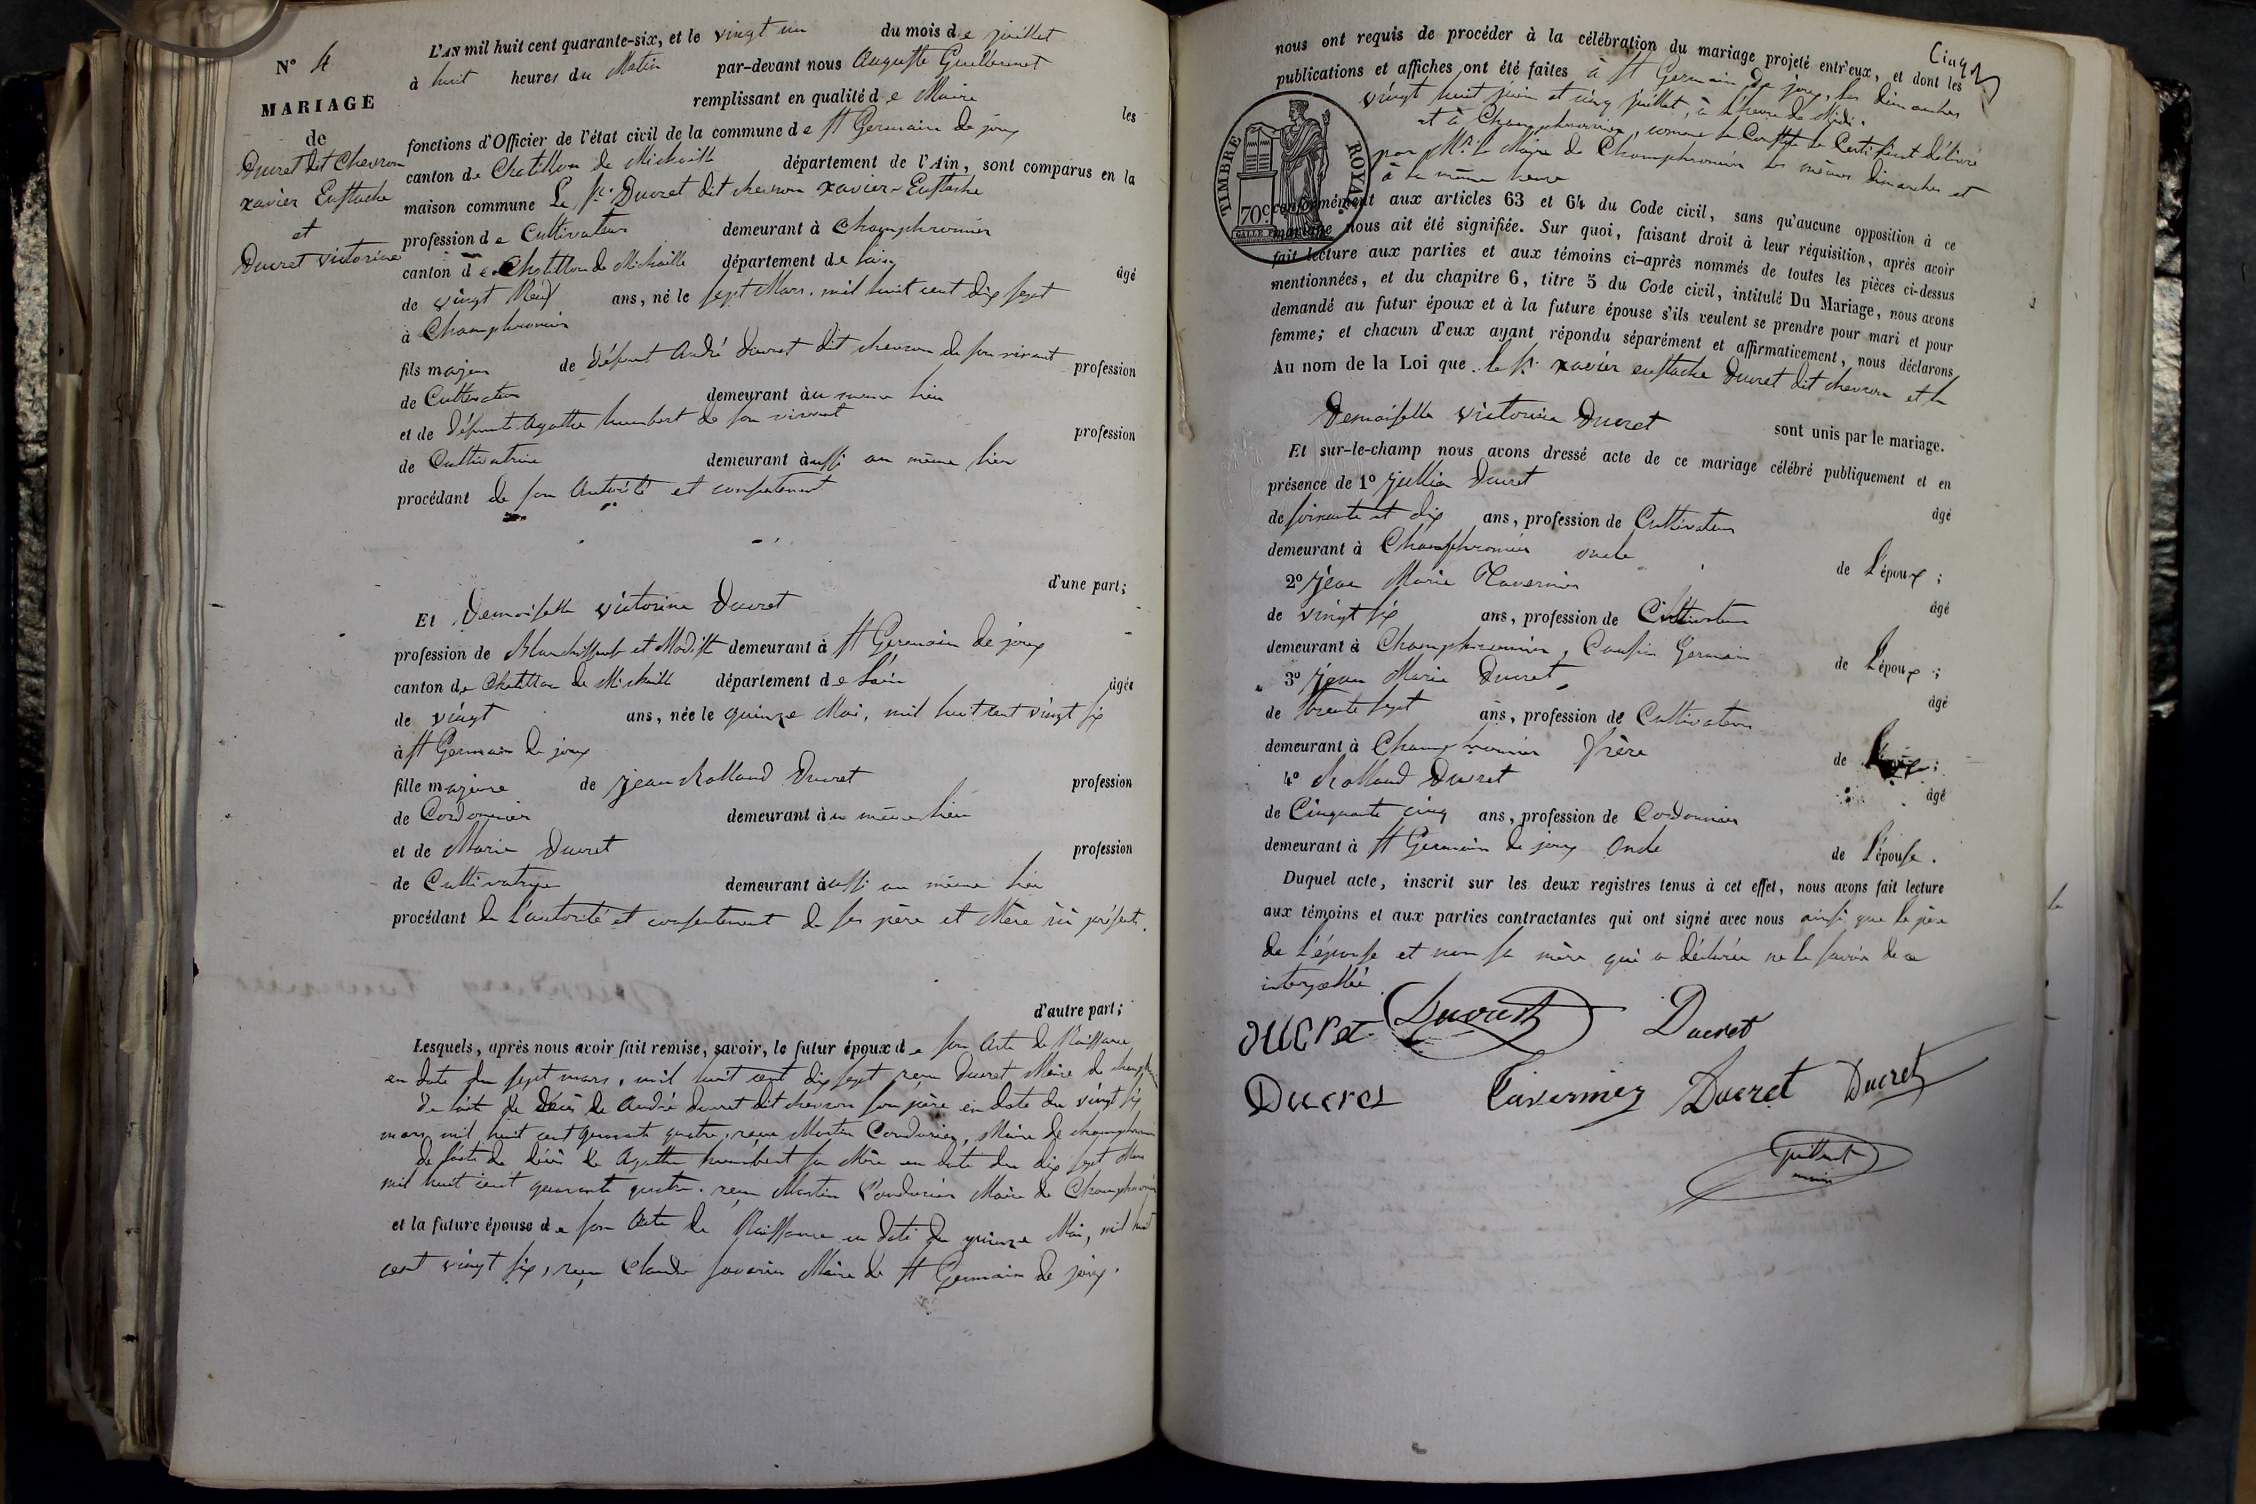 N° 4
MARIAGE
de
Ducret dit Chevron
xavier Eustache
et
Ducret victorine
L'AN mil huit cent quarante-six, et le vingt un du mois de juillet
à huit heures du Matin par-devant nous Auguste
remplissant en qualité de Maire les
fonctions d'Officier de l'état civil de la commune de St Germain de joux
canton de Chatillon de Michaille département de l'Ain, sont comparus en la
maison commune Le Sr. Ducret dit chevron xavier Eustache
profession de Cultivateur demeurant à Champfromier
canton de Chatillon de Michaille département de l'ain âgé
de vingt Neuf ans, né le sept Mars, mil huit cent dix sept
à Champfromier
fils majeur de défunt André Ducret dit chevron de son vivant profession
de Cultivateur demeurant au même lieu
et de défunte Agathe humbert de son vivant profession
de Cultivatrice demeurant aussi au même lieu
procédant de son Autorité et consentement
d'une part;
Et Demoiselle victorine Ducret
profession de Blanchisseuse et Modiste demeurant à St Germain de joux
canton de Chatillon de Michaille département de l'ain âgée
de vingt ans, née le quinze Mai, mil huit cent vingt six
à St Germain de joux
fille majeure de jean Rolland Ducret profession
de Cordonnier demeurant au même lieu
et de Marie Ducret profession
de Cultivatrice demeurant aussi au même lieu
procédant de l'autorité et consentement de ses père et Mère ici présent.
d'autre part;
Lesquels, après nous avoir fait remise, savoir, le futur époux de son Acte de Naissance
en date du sept mars, mil huit cent dix sept reçu Ducret Maire de
de l'acte de décès de André Ducret dit chevron son père en date du vingt six
mars mil huit cent quarante quatre, reçu Martin Coudurier, Maire de champfromier
de l'acte de décès de Agathe humbert sa Mère en date du dix sept Mars
mil huit cent quarante quatre. reçu Martin Coudurier Maire de Champfromier
et la future épouse de son Acte de Naissance en date du quinze Mai, mil huit
cent vingt six, reçu Claude Maire de St Germain de joux.
Cinq
nous ont requis de procéder à la célébration du mariage projeté entr'eux, et dont les
publications et affiches ont été faites à St Germain de joux, les dimanches
vingt huit juin et cinq juillet, à l'heure de Midi.
et à Champfromier, comme le Constate le Certificat délivré
par Mr. le Maire de Champfromier les mêmes dimanches et
à la même heure
TIMBRE ROYAL
70 c.
conformément aux articles 63 et 64 du Code civil, sans qu'aucune opposition à ce
mariage nous ait été signifiée. Sur quoi, faisant droit à leur réquisition, après avoir
fait lecture aux parties et aux témoins ci-après nommés de toutes les pièces ci-dessus
mentionnées, et du chapitre 6, titre 5 du Code civil, intitulé Du Mariage, nous avons
demandé au futur époux et à la future épouse s'ils veulent se prendre pour mari et pour
femme; et chacun d'eux ayant répondu séparément et affirmativement, nous déclarons
Au nom de la Loi que le Sr. xavier eustache Ducret dit chevron et la
Demoiselle victorine Ducret sont unis par le mariage.
Et sur-le-champ nous avons dressé acte de ce mariage célébré publiquement et en
présence de 1° Ducret âgé
de soixante et dix ans, profession de Cultivateur
demeurant à Champfromier oncle de l'époux;
2° jean Marie Tavernier âgé
de vingt six ans, profession de Cultivateur
demeurant à Champfromier, Cousin Germain de l'époux;
3° jean Marie Ducret âgé
de trente sept ans, profession de Cultivateur
demeurant à Champfromier frère de
4° Rolland Ducret âgé
de Cinquante cinq ans, profession de Cordonnier
demeurant à St Germain de joux Oncle de l'épouse.
Duquel acte, inscrit sur les deux registres tenus à cet effet, nous avons fait lecture
aux témoins et aux parties contractantes qui ont signé avec nous ainsi que le père
de l'épouse et non sa mère qui a déclarée ne le savoir de ce
interpellée
Ducret Ducret Ducret
Ducret Tavernier Ducret Ducret